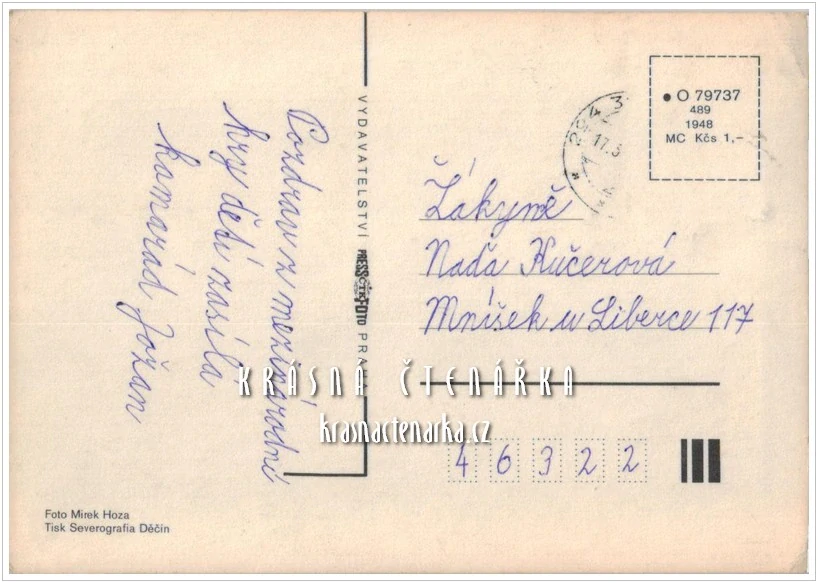 Pozdrav z mezinárodní
hry dětí zasílá
kamarád Jožan
VYDAVATELSTVÍ PRESSFOTO PRAHA
ČTK
O 79737
489
1948
MC Kčs 1,-
Žákyně
Naďa Kučerová
Mníšek u Liberce 117
KRÁSNÁ ČTENÁŘKA
krasnactenarka.cz
46322
Foto Mirek Hoza
Tisk Severografia Děčín